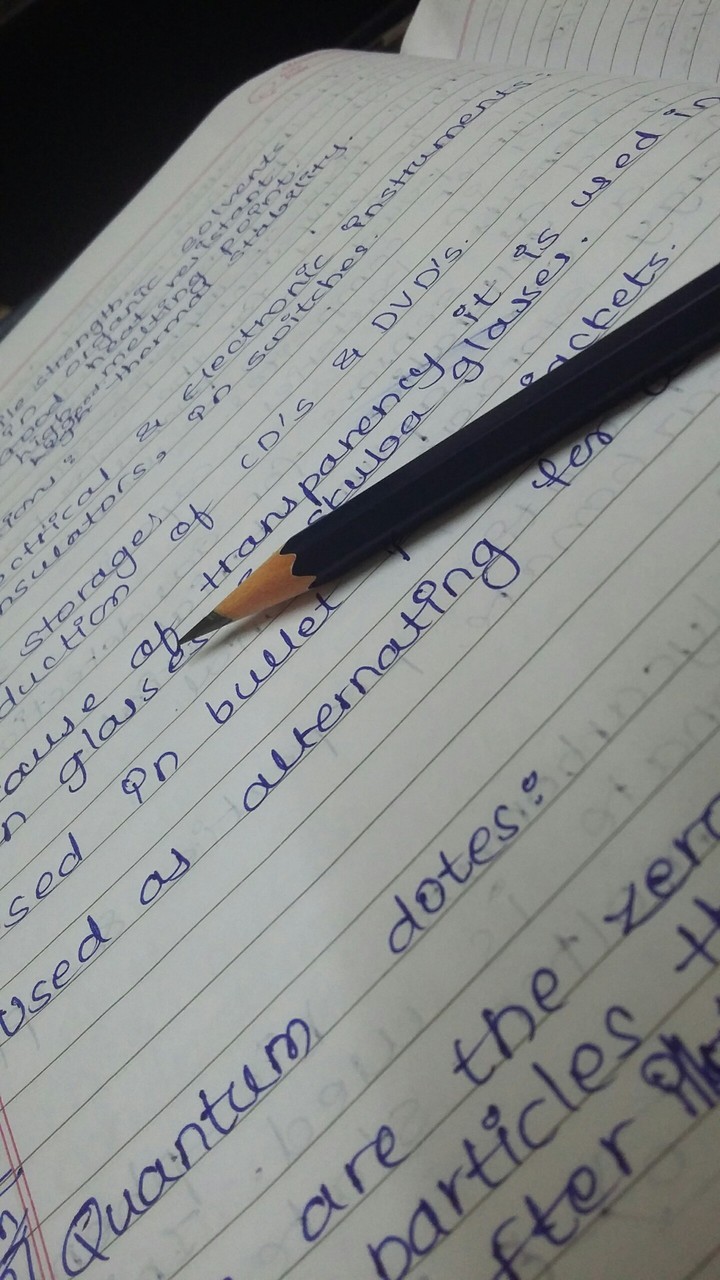 strength.
in organic solvents.
Good heat resistant.
high melting point.
high thermal stability.
ions:
ectrical & Electronic instruments.
nsulators, in switches.
storages of CD's & DVD's.
duction
ause of transparency it is used in
n glasses skuba glasses.
sed in bullet jackets.
Used as alternating for
Quantum dotes:
are the zero
particles
fter